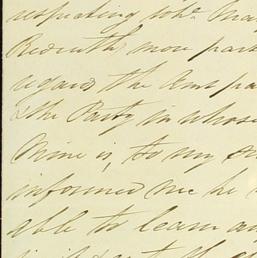 respecting
Redruth, more par
regard the Am pa
& the Party in whose
Mine is, to my
informed me he
able to learn an